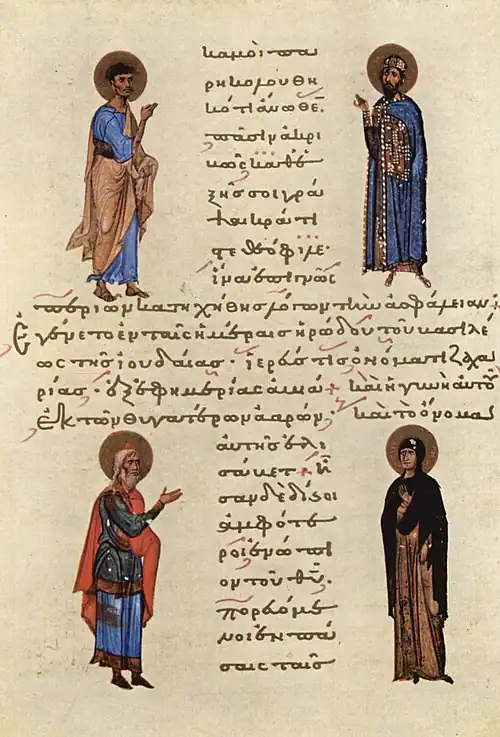 κἀμοὶ πα
ρηκολουθη
κότι ἄνωθε̅
πᾶσιν ἀκρι
βῶς καθε
ξῆς σοι γρά
ψαι κράτι
στε θεόφιλε·
ἵνα ἐπιγνῶς
περὶ ὧν κατηχήθης λόγων τὴν ἀσφάλειαν·
Ἐγένετο ἐν ταῖς ἡμέραις ἡρώδου τοῦ βασιλέ
ως τῆς ἰουδαίας· ἱερεύς τις ὀνόματι ζαχα
ρίας· ἐξ ἐφημερίας ἀβιά· καὶ ἡ γυνὴ αὐτοῦ
ἐκ τῶν θυγατέρων ἀαρών· καὶ τὸ ὄνομα
αὐτῆς ἐλι
σάβετ· ἦ
σαν δὲ δίκαιοι
ἀμφότε
ροι ἐνώπι
ον τοῦ θυ̅·
πορευόμε
νοι ἐν πά
σαις ταῖς